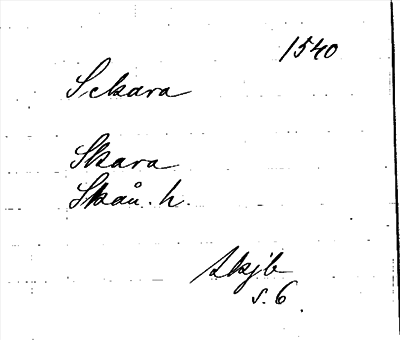 1540
Sckara
Skara
Skån. h.
Lkjb
s. 6.